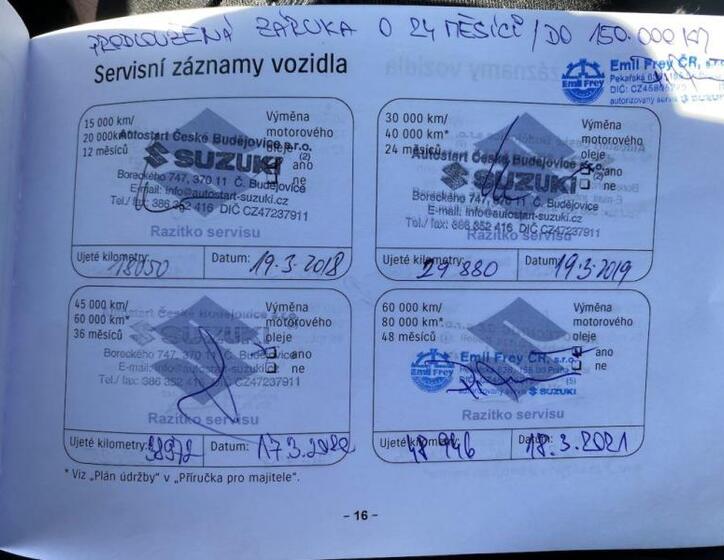 PRODLOUŽENÁ ZÁRUKA O 24 MĚSÍCŮ / DO 150.000 KM
Servisní záznamy vozidla
Emil Frey ČR, s.r.o.
Emil Frey
DIČ: CZ
autorizovaný servis SUZUKI
15 000 km/
20 000 km*
12 měsíců
Výměna
motorového
oleje
ano
ne
Autostart České Budějovice s.r.o.
(2)
SUZUKI
Boreckého 747, 370 11 Č. Budějovice
E-mail: info@autostart-suzuki.cz
Tel./ fax: 386 352 416 DIČ CZ47237911
Razítko servisu
Ujeté kilometry: 18050
Datum: 19.3.2018
30 000 km/
40 000 km*
24 měsíců
Výměna
motorového
oleje
ano
ne
Autostart České Budějovice s.r.o.
(2)
SUZUKI
Boreckého 747, 370 11 Č. Budějovice
E-mail: info@autostart-suzuki.cz
Tel./ fax: 386 352 416 DIČ CZ47237911
Razítko servisu
Ujeté kilometry: 29 880
Datum: 19.3.2019
45 000 km/
60 000 km*
36 měsíců
Výměna
motorového
oleje
ano
ne
Autostart České Budějovice s.r.o.
SUZUKI
Boreckého 747, 370 11 Č. Budějovice
E-mail: info@autostart-suzuki.cz
Tel./ fax: 386 352 416 DIČ CZ47237911
Razítko servisu
Ujeté kilometry: 38972
Datum: 17.3.2020
60 000 km/
80 000 km*
48 měsíců
Výměna
motorového
oleje
ano
ne
Emil Frey ČR, s.r.o.
Emil Frey
(5)
SUZUKI
Razítko servisu
Ujeté kilometry: 48 946
Datum: 18.3.2021
* Viz „Plán údržby" v „Příručka pro majitele".
– 16 –